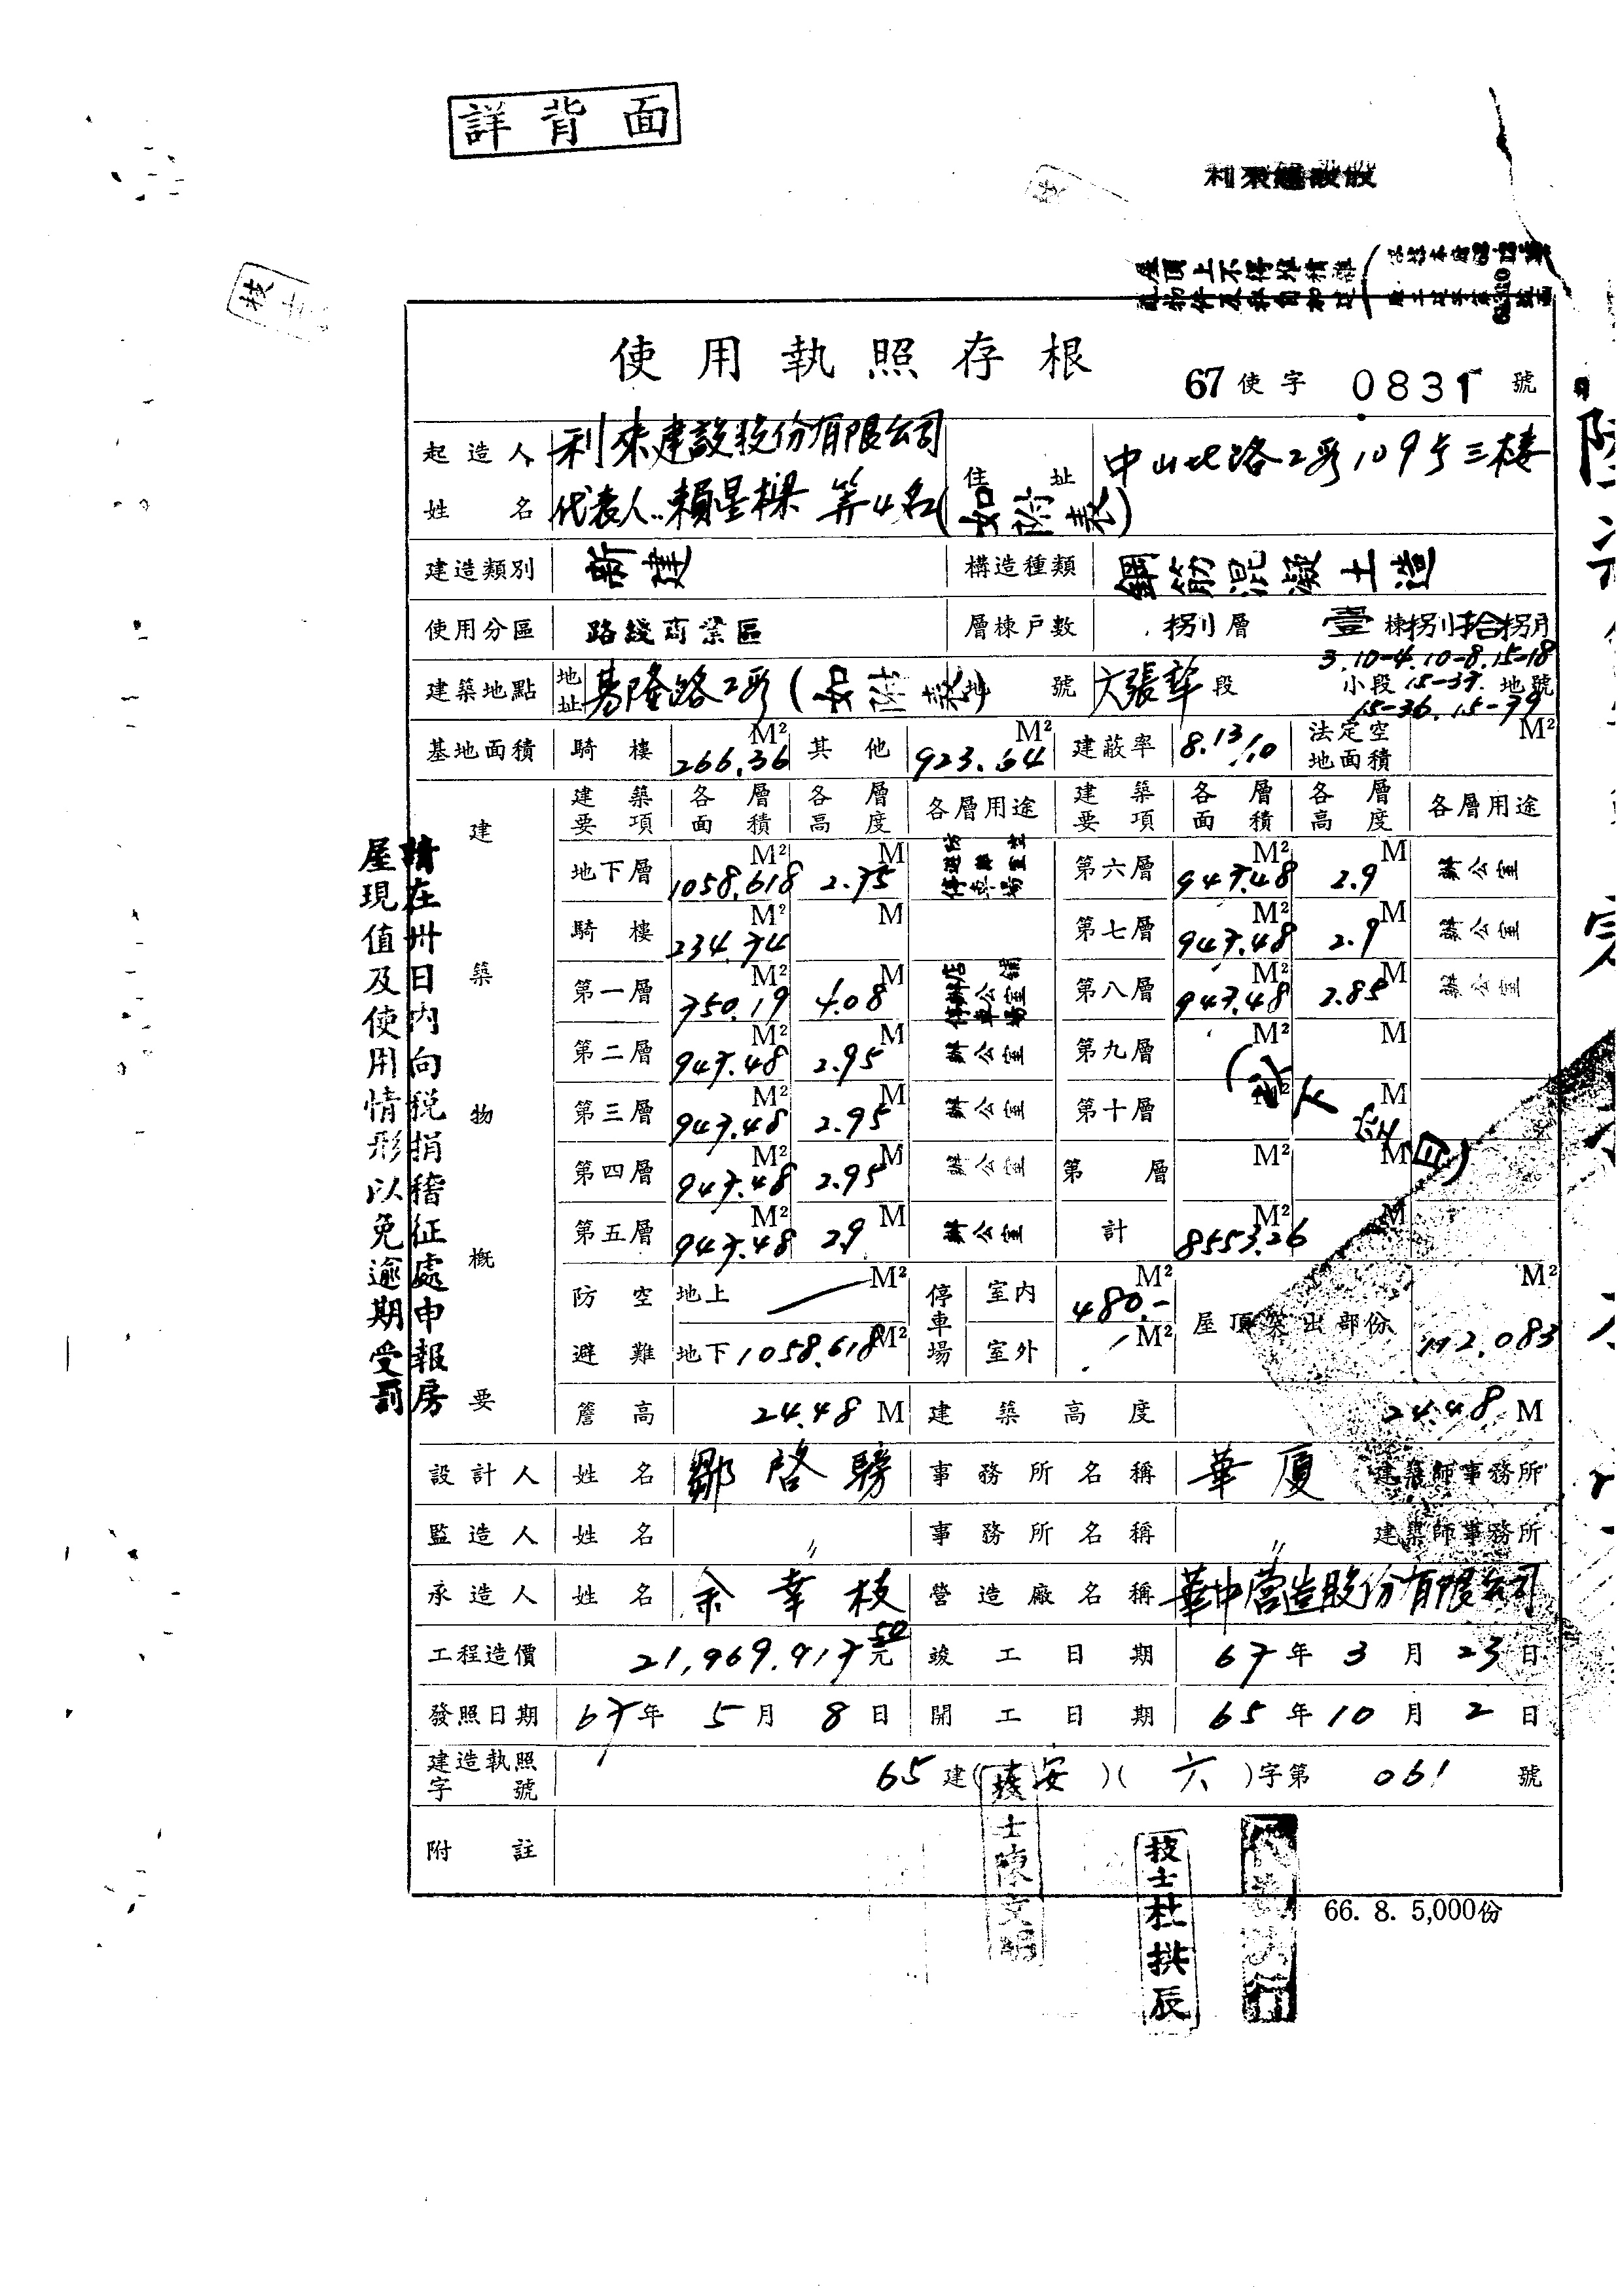 詳背面
利來建設股
屋頂上不得堆積雜
使用執照存根
67使字 0831 號
起造人姓名 利來建設股份有限公司 代表人:賴星樑 等4名(如附表) 住址 中山北路2段109号三樓
建造類別 新建 構造種類 鋼筋混凝土造
使用分區 路綫商業區 層棟戶數 捌層 壹棟捌拾捌戶
3.10-4.10-8.15-18
建築地點 地址 基隆路2段(如附表) 地號 六張犂段 小段 15-37. 地號
15-36.15-79
基地面積 騎樓 266.36 M² 其他 923.64 M² 建蔽率 8.13/10 法定空地面積 M²
建築物概要
建築要項 各層面積 各層高度 各層用途 建築要項 各層面積 各層高度 各層用途
地下層 1058.618 M² 2.75 M 防空避難室停車場 第六層 947.48 M² 2.9 M 辦公室
騎樓 234.74 M² M 第七層 947.48 M² 2.9 M 辦公室
第一層 750.19 M² 4.08 M 店舖辦公室停車場 第八層 947.48 M² 2.85 M 辦公室
第二層 947.48 M² 2.95 M 辦公室 第九層 M² M
第三層 947.48 M² 2.95 M 辦公室 第十層 M² M
(以下空白)
第四層 947.48 M² 2.95 M 辦公室 第 層 M² M
第五層 947.48 M² 2.9 M 辦公室 計 8553.26 M² M
防空避難 地上 M² 停車場 室內 480.- M² 屋頂突出部份 112.083 M²
地下 1058.618 M² 室外 M²
簷高 24.48 M 建築高度 24.48 M
設計人 姓名 鄒啓騄 事務所名稱 華厦 建築師事務所
監造人 姓名 〃 事務所名稱 〃 建築師事務所
承造人 姓名 余幸枝 營造廠名稱 華中營造股份有限公司
工程造價 21,969,917.50元 竣工日期 67年3月23日
發照日期 67年5月8日 開工日期 65年10月2日
建造執照字號 65建(大安)(六)字第 061 號
附註
請在卅日內向稅捐稽征處申報房
屋現值及使用情形以免逾期受罰
技士
技士陳文
技士杜拱辰
66. 8. 5,000份